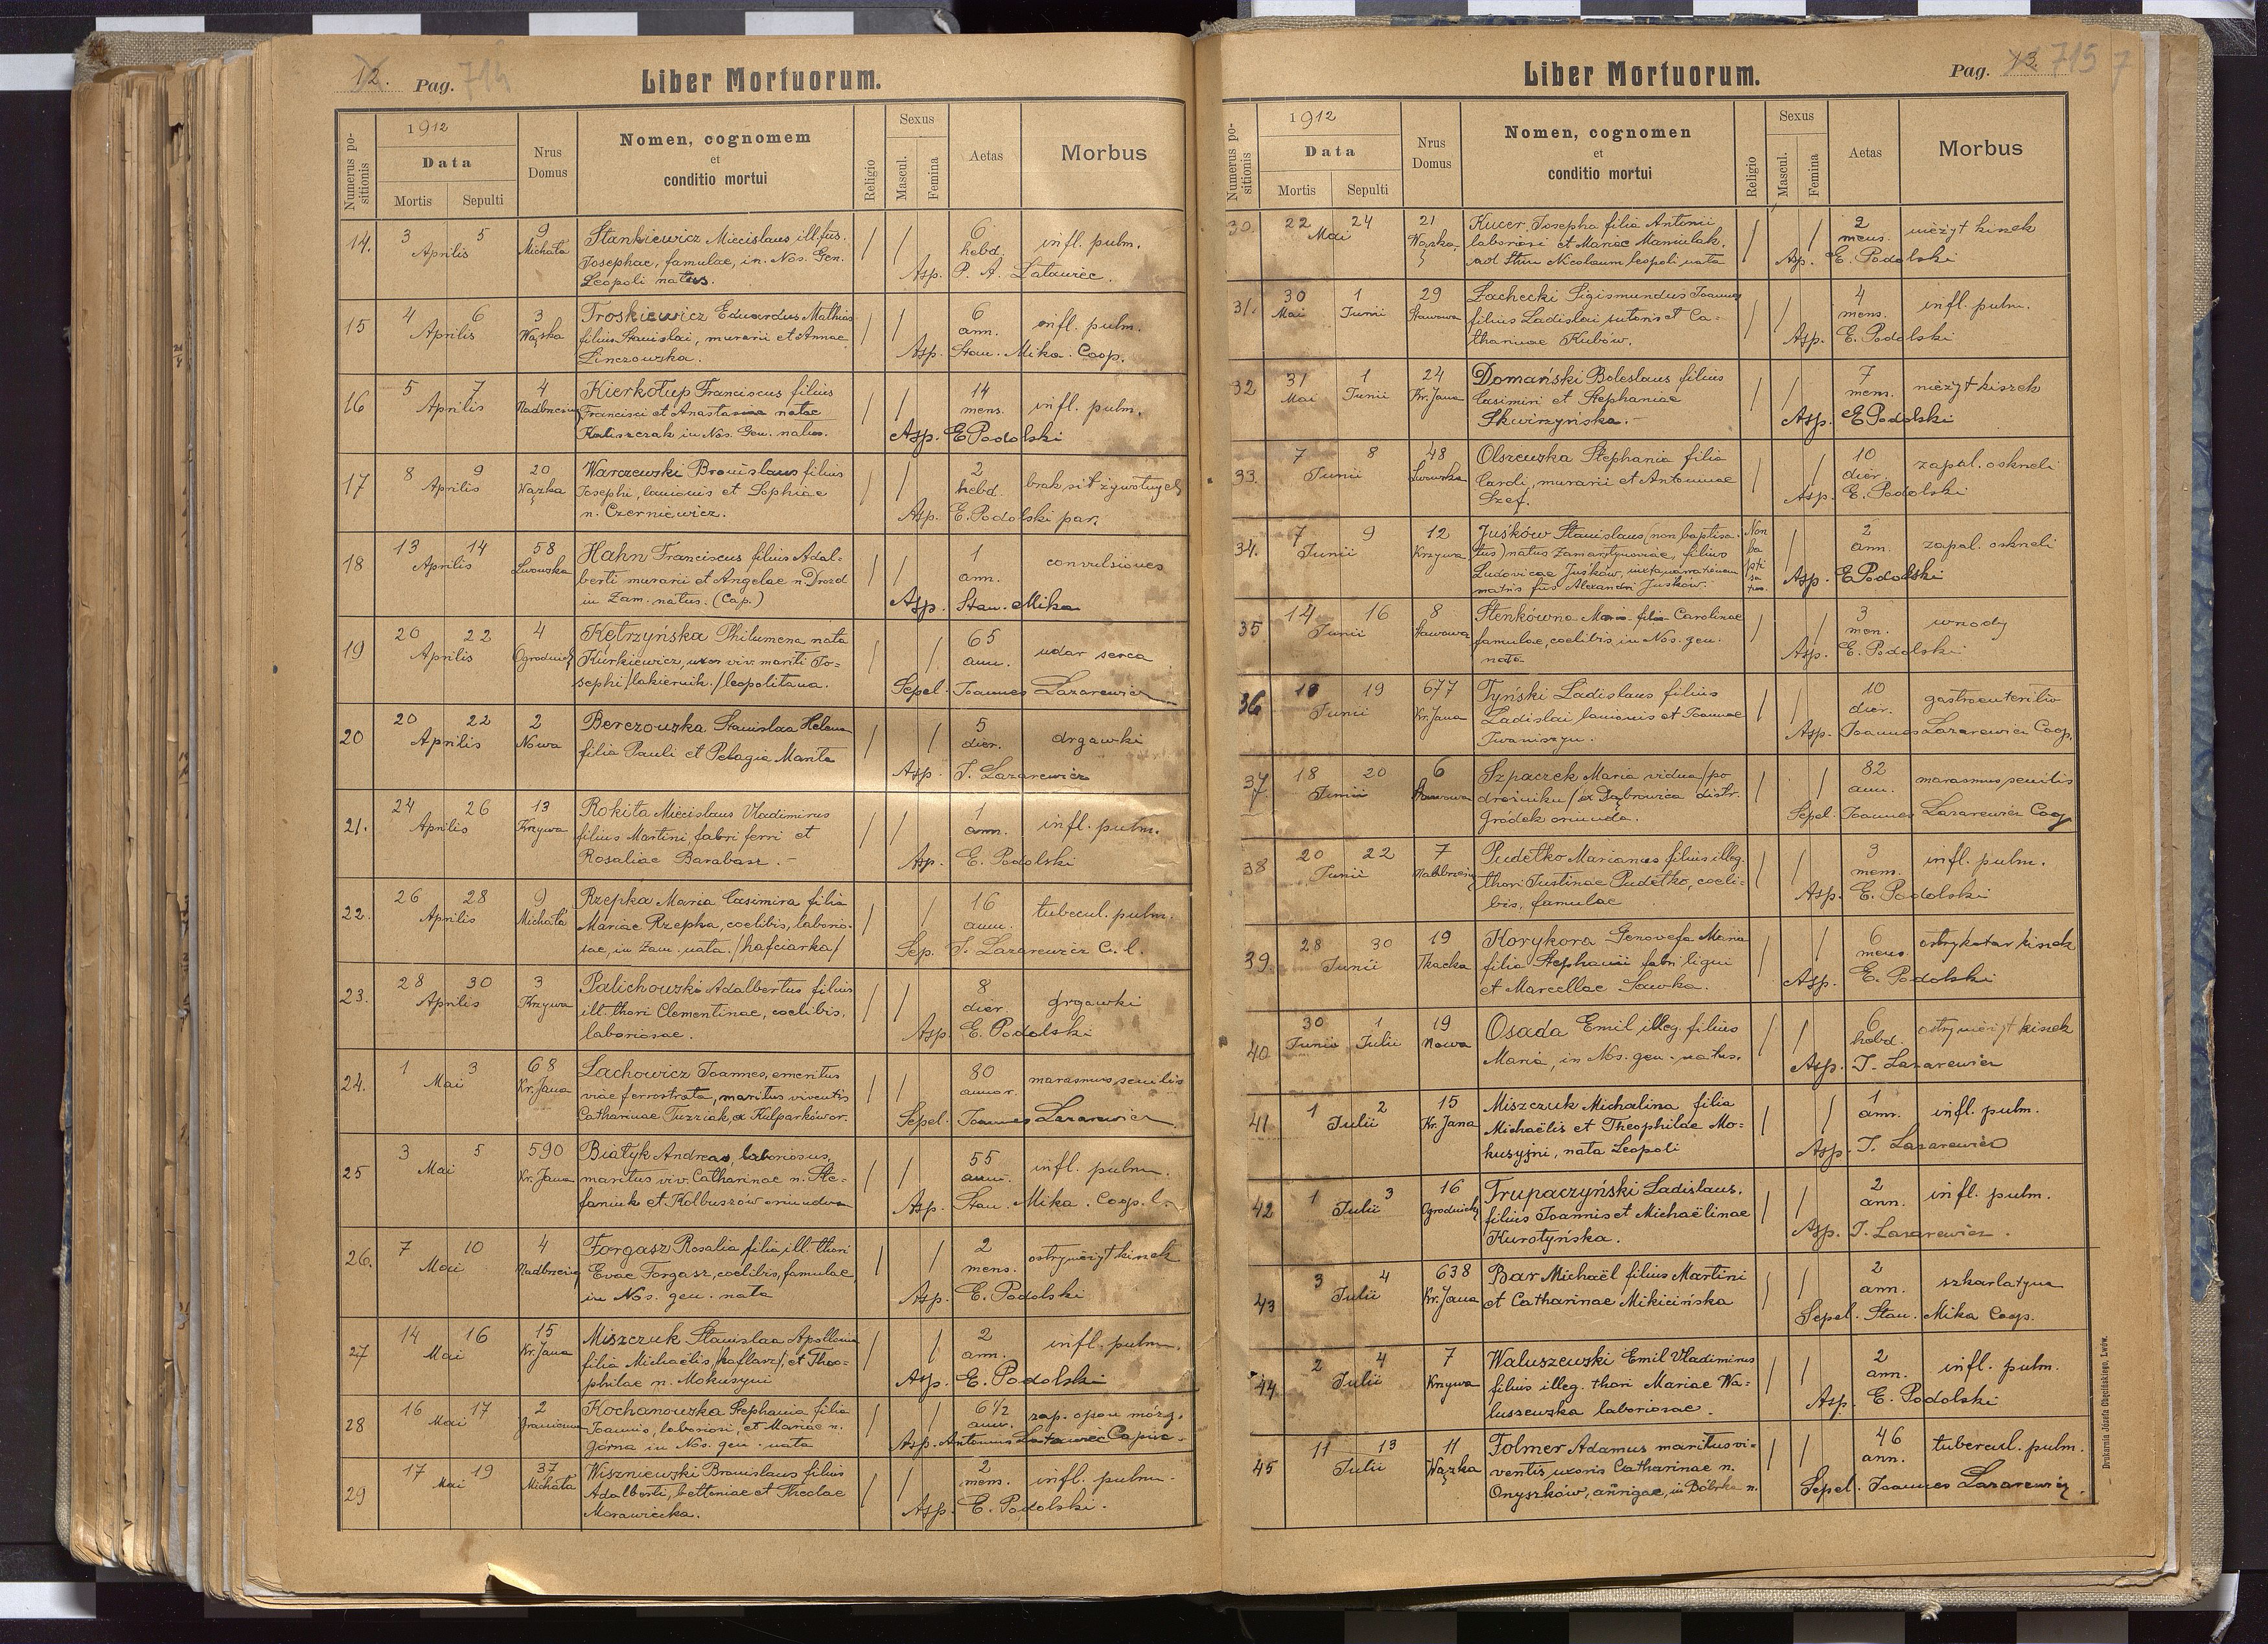 12. Pag. 714
Liber Mortuorum.
Numerus positionis
1912
Data
Mortis Sepulti
Nrus Domus
Nomen, cognomem
et
conditio mortui
Religio
Sexus
Mascul. Femina
Aetas
Morbus
14. 3 5 9 Stankiewicz Miecislaus ill. fus. 6 infl. pulm.
Aprilis Michała Josephae, famulae, in Nos. Gen. hebd.
Leopoli natus. Asp. P. A. Latawiec.
15 4 6 3 Troskiewicz Eduardus Mathias 6 infl. pulm.
Aprilis Wązka filius Stanislai, murarii et Annae ann.
Linczowska. Asp. Stan. Mika. Coop.
16 5 7 4 Kierkołup Franciscus filius 14 infl. pulm.
Aprilis Francisci et Anastasiae natae mens.
Kaliszczak in Nos. Gen. natus. Asp. E Podolski
17 8 9 20 Warczewski Bronislaus filius 2 brak sił żywotnych
Aprilis Wązka Josephi, lanionis et Sophiae hebd.
n. Czerniewicz. Asp. E. Podolski par.
18 13 14 58 Hahn Franciscus filius Adal= 1 convulsiones
Aprilis Lwowska berti murarii et Angelae n. Drozd ann.
in Zam. natus. (Cap.) Asp. Stan. Mika
19 20 22 4 Kętrzyńska Philumena nata 65 udar serca
Aprilis Kurkiewicz, uxor viv. mariti Jo= ann.
sephi /lakiernik./ leopolitana. Sepel. Joannes Lazarewicz
20 20 22 2 Berezowska Stanislaa Helena 5 drgawki
Aprilis Nowa filia Pauli et Pelagia Manita dier.
Asp. J. Lazarewicz
21. 24 26 13 Rokita Miecislaus Vladimirus 1 infl. pulm.
Aprilis Krzywa filius Martini, fabri ferri et ann.
Rosaliae Barabasz. Asp. E. Podolski
22. 26 28 9 Rzepka Maria Casimira filia 16 tubecul. pulm.
Aprilis Michała Mariae Rzepka, coelibis, laborio- ann.
sae, in Zam. nata. /hafciarka/ Sep. J. Lazarewicz C. l.
23. 28 30 3 Palichowski Adalbertus filius 8 drgawki
Aprilis Krzywa ill. thori Clementinae, coelibis, dier.
laboriosae. Asp. E. Podolski
24. 1 3 68 Lachowicz Joannes, emeritus 80 marasmus senilis
Mai Kr. Jana viae ferrostrata, maritus viventis annor.
Catharinae Tuzziak, ex Kulparków or. Sepel. Joannes Lazarewicz
25 3 5 590 Białyk Andreas, laboriosus, 55 infl. pulm.
Mai Kr. Jana maritus viv. Catharinae n. Ste= ann.
faniuk et Kolbuszów oriundus Asp. Stan. Mika. Coop. l.
26. 7 10 4 Forgasz Rosalia filia, ill. thori 2 ostry nieżyt kiszek
Mai Evae Forgasz, coelibis, famulae, mens.
in Nos. gen. nata Asp. E. Podolski
27 14 16 15 Miszczuk Stanislaa Apollonia 2 infl. pulm.
Mai Kr. Jana filia Michaëlis, /kaflarz/, et Theo= ann.
philae n. Mokusyni Asp. E. Podolski
28 16 17 2 Kochanowska Stephania filia 6 1/2 zap. opon mózg.
Mai Joannis, laboriosi, et Mariae n. ann.
Górna in Nos. gen. nata Asp. Antonius Latawiec
29 17 19 37 Wiszniewski Bronislaus filius 2 infl. pulm.
Mai Michała Adalberti, et Theclae mens.
Morawiecka. Asp. E. Podolski.
Liber Mortuorum.
Pag. 13. 715 7
Numerus positionis
1912
Data
Mortis Sepulti
Nrus Domus
Nomen, cognomen
et
conditio mortui
Religio
Sexus
Mascul. Femina
Aetas
Morbus
30. 22 24 21 Kucer Josepha filia Antonii 2 nieżyt kiszek
Mai Wązka laboriosi et Mariae Maniulak, mens.
ad Stum Nicolaum leopoli nata Asp. E. Podolski
31. 30 1 29 Zachecki Sigismundus Joannes 4 infl. pulm.
Mai Junii Stawowa filius Ladislai sutoris et Ca= mens.
tharinae Kubów. Asp. E. Podolski
32 31 1 24 Domański Boleslaus filius 7 nieżyt kiszek
Mai Junii Kr. Jana Casimiri et Stephaniae mens.
Skwirzyńska. Asp. E Podolski
33. 7 8 48 Olszewska Stephania filia 10 zapal. oskrzeli
Junii Lwowska Caroli, murarii et Antoninae dier.
Szef. Asp. E. Podolski
34. 7 9 12 Juśków Stanislaus (non baptisa- Non baptisatus 2 zapal. oskrzeli
Junii Krzywa tus) natus Zamarstynoviae, filius ann.
Ludovicae Juśków, iuxta narrationem Asp. E Podolski
matris fius Alexandri Juśków.
35 14 16 8 Stenkówna Maria filia Carolinae 3 wrzody
Junii Stawowa famulae, coelibis, in Nos. gen. men.
nata Asp. E. Podolski
36 18 19 677 Tyński Ladislaus filius 10 gastroenteritis
Junii Kr. Jana Ladislai lanionis et Joannae dier.
Iwaniszyn. Asp. Joannes Lazarewicz Coop.
37. 18 20 6 Szpaczek Maria vidua /po 82 marasmus senilis
Junii Stawowa drożniku/ ex Dąbrowica distr. ann.
Grodek oriunda. Sepel. Joannes Lazarewicz Coop
38 20 22 7 Pudełko Marianus filius illeg. 3 infl. pulm.
Junii thori Justinae Pudełko, coeli= mens.
bis, famulae Asp. E. Podolski
39. 28 30 19 Korykora Genovefa Maria 6 ostry katar kiszek
Junii Tkacka filia Stephanii fabri ligni mens.
et Marcellae Sawka. Asp. E. Podolski
40 30 1 19 Osada Emil illeg. filius 6 ostry nieżyt kiszek
Junii Julii Nowa Maria, in Nos. gen. natus. hebd.
Asp. J. Lazarewicz
41. 1 2 15 Miszczuk Michalina filia 1 infl. pulm.
Julii Kr. Jana Michaëlis et Theophilae Mo= ann.
kusyjni, nata Leopoli Asp. J. Lazarewicz
42 1 3 16 Trupaczyński Ladislaus, 2 infl. pulm.
Julii filius Joannis et Michaëlinae ann.
Kurotyńska. Asp. J. Lazarewicz.
43 3 4 638 Bar Michaël filius Martini 2 szkarlatyna
Julii Kr. Jana et Catharinae Mikicińska ann.
Sepel. Stan. Mika Coop.
44 2 4 7 Waluszewski Emil Vladimirus 2 infl. pulm.
Julii Krzywa filius illeg. thori Mariae Wa= ann.
luszewska laboriosae. Asp. E. Podolski
45 11 13 11 Folmer Adamus maritus vi= 46 tubercul. pulm.
Julii Wązka ventis uxoris Catharinae n. ann.
Onyszków, aurigae, in Bóbrka n. Sepel. Joannes Lazarewicz.
Drukarnia Józefa Obęgińskiego, Lwów.